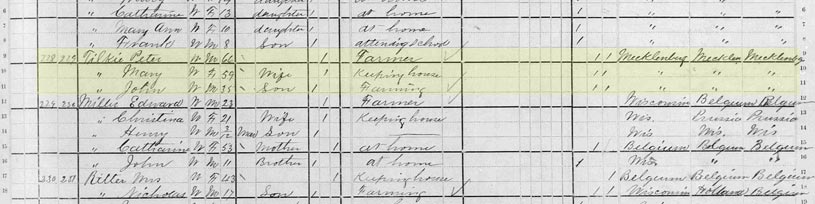 6 " Catharine W F 13 daughter at home " " " 6
7 " Mary Ann W F 10 daughter at home " " " 7
8 " Frank W M 8 Son attending school " " "
9 228 229 Tilkie Peter W M 66 1 Farmer 1 1 Mecklenburg Mecklen Mecklenbg 9
10 " Mary W F 59 Wife 1 Keeping house 1 1 " " "
11 " John W M 35 Son 1 Farming 1 1 " " " 11
12 229 230 Millis Edward W M 23 1 Farmer Wisconsin Belgium Belgium 12
13 " Christina W F 21 Wife 1 Keeping house Wis. Prussia Prussia 13
14 " Henry W M Son 1 Wis Wis. Wis 14
15 " Catharine W F 53 Mother 1 at home 1 Belgium Belgium Belgium 15
16 " John W M 11 Brother 1 at home 1 Wis. " " 16
17 230 231 Ritter Mrs W F 43 1 Keeping house 1 Belgium Belgium Belgium 17
18 " Nicholas W M 17 Son 1 Farming 1 1 Wisconsin Holland Belgium 18